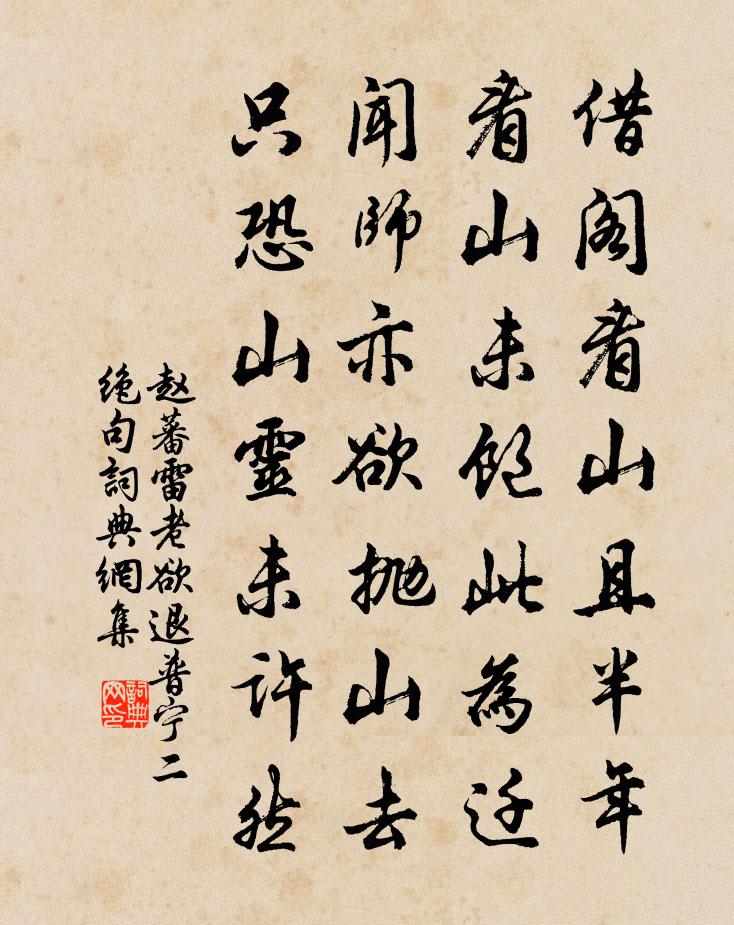 借阁看山且半年
看山未饱此为迁
闻师亦欲抛山去
只恐山灵未许然
赵蕃雷老欲退普宁二
绝句词典网集
词典网印